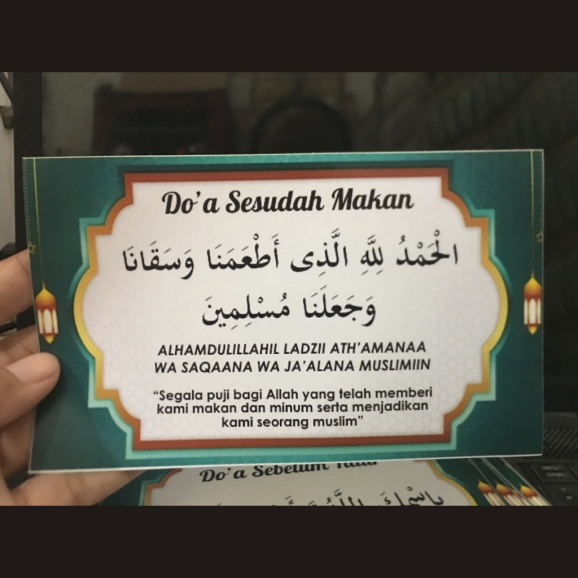 Do'a Sesudah Makan
الْحَمْدُ لِلَّهِ الَّذِى أَطْعَمَنَا وَسَقَانَا
وَجَعَلَنَا مُسْلِمِينَ
ALHAMDULILLAHIL LADZII ATH'AMANAA
WA SAQAANA WA JA'ALANA MUSLIMIIN
“Segala puji bagi Allah yang telah memberi
kami makan dan minum serta menjadikan
kami seorang muslim”
Do'a Sebelum